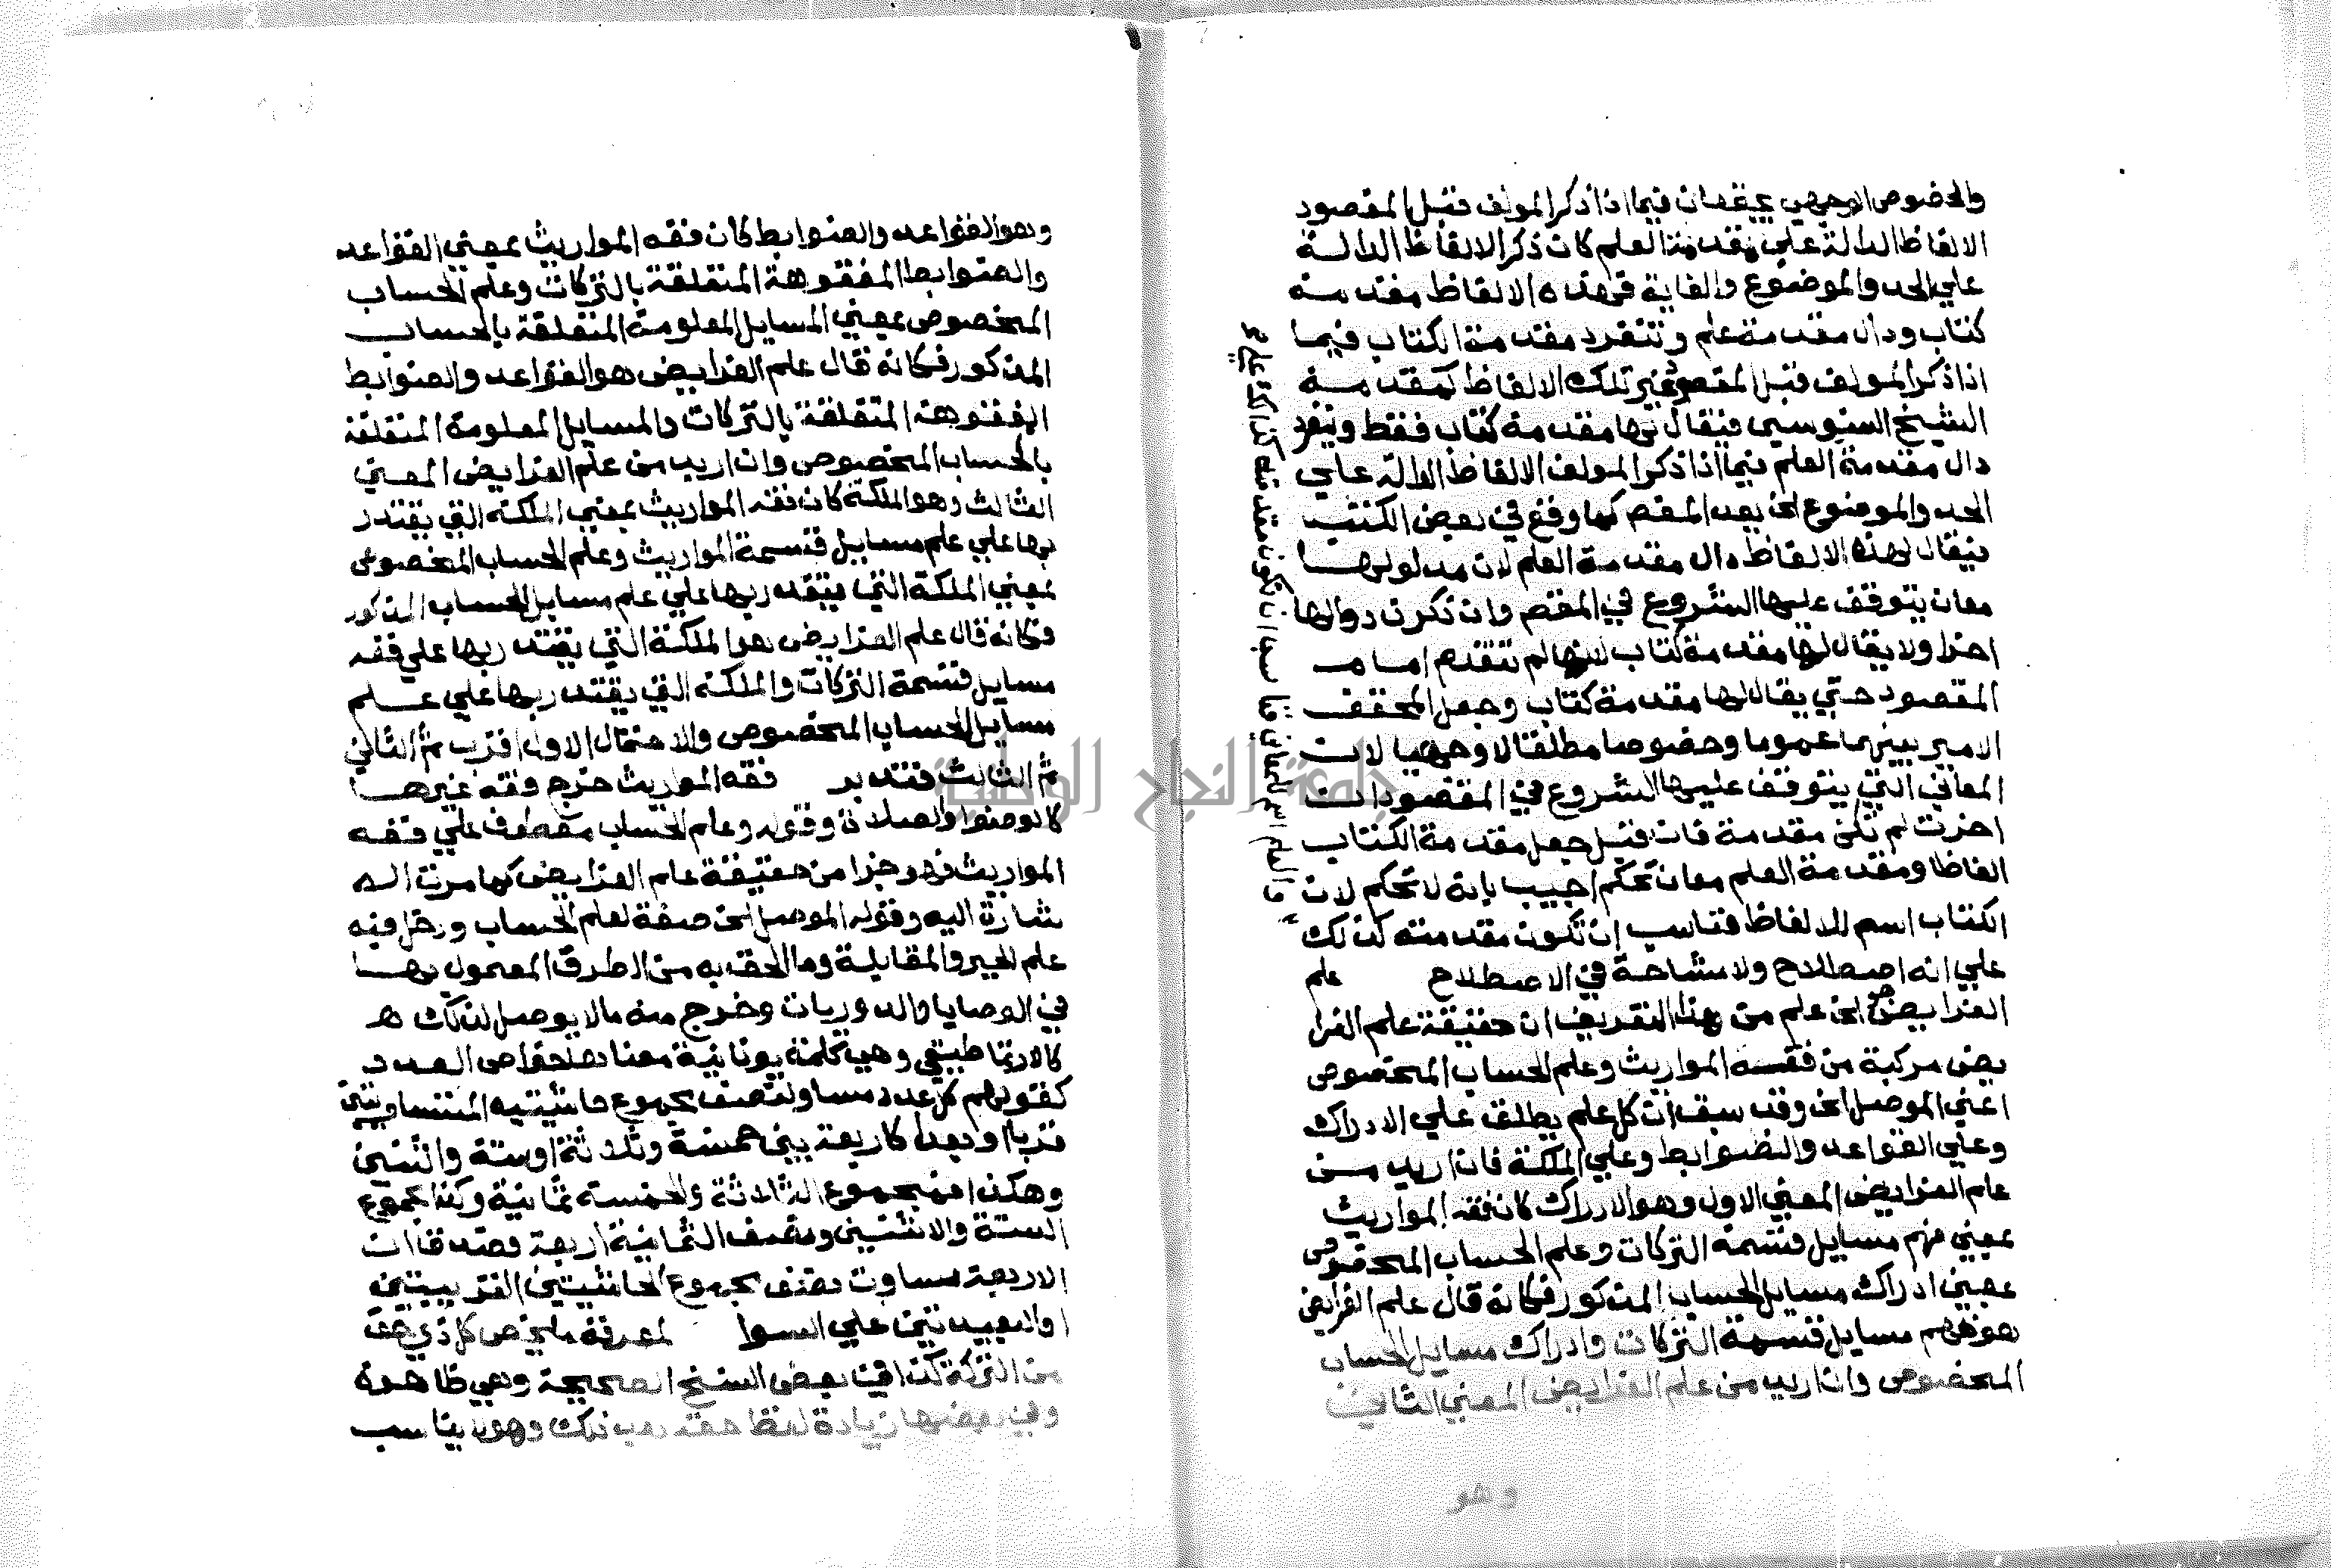 والخصوص الوجهي يجتمعان فيما اذا ذكر المولف قبل المقصود
الالفاظ الدالة علي مقدمة العلم كان ذكر الالفاظ الدالـــة
علي الحد والموضوع والغاية فهذه الالفاظ مقدمـــة
كتاب ودال مقدمة علم وتنفرد مقدمة الكتاب فيمــا
اذا ذكر المولف قبل المقصود غير تلك الالفاظ كمقدمـــة
الشيخ السنوسي فيقال لها مقدمة كتاب فقط وينفرد
دال مقدمة العلم فيما اذا ذكر المولف الالفاظ الدالة علي
الحد والموضوع الخ بعد المقصم كما وقع في بعض الكتب
فيقال لهذه الالفاظ دال مقدمة العلم لان مدلولهـــا
معان يتوقف عليها الشروع في المقصم وان ذكرت دوالها
اخرا ولا يقال لها مقدمة كتاب لانها لم تتقدم امامــ
المقصود حتي يقال لها مقدمة كتاب وجعل المحقق
الامير بينهما عموما وخصوصا مطلقا لا وجهيا لان
المعاني التي يتوقف عليها الشروع في المقصود ان
اخرت لم تكن مقدمة فان قيل جعل مقدمة الكتاب
الفاظا ومقدمة العلم معان تحكم اجيب بانه لا تحكم لان
الكتاب اسم للالفاظ فناسب ان تكون مقدمته كذلك
والعلم اسم للمعاني فناسب ان تكون مقدمته كذلك
علي انه اصطلاح ولا مشاحة في الاصطلاح علم
الفرايض الخ علم من هذا التعريف ان حقيقة علم الفرا
يض مركبة من فقسه المواريث وعلم الحساب المخصوص
اعني الموصل الخ وقد سبق ان كل علم يطلق علي الادراك
وعلي القواعد والضوابط وعلي الملكة فان اريد مـــن
علم الفرايض المعني الاول وهو الادراك كان فقه المواريث
بمعني فهم مسايل قسمة التركات وعلم الحساب المخصوص
بمعني ادراك مسايل الحساب المذكور فكانه قال علم الفرايض
هو فهم مسايل قسمة التركات وادراك مسايل الحساب
المخصوص وان اريد من علم الفرايض المعني الثاني
وهو
وهو القواعد والضوابط كان فقه المواريث بمعني القواعد
والضوابط المفقوهة المتعلقة بالتركات وعلم الحساب
المخصوص بمعني المسايل المعلومة المتعلقة بالحساب
المذكور فكانه قال علم الفرايض هو القواعد والضوابط
المفقوهة المتعلقة بالتركات والمسايل المعلومة المتعلقة
بالحساب المخصوص وان اريد من علم الفرايض المعني
الثالث وهو الملكة كان فقه المواريث بمعني الملكة التي يقتدر
بها علي علم مسايل قسمة المواريث وعلم الحساب المخصوص
بمعني الملكة التي يقتدر بها علي علم مسايل الحساب المذكور
فكانه قال علم الفرايض هو الملكة التي يقتدر بها علي فقه
مسايل قسمة التركات والملكة التي يقتدر بها علي علـــم
مسايل الحساب المخصوص والاحتمال الاول اقرب ثم الثاني
ثم الثالث فتدبر فقه المواريث خرج فقه غيرهـــا
كالوضوا والصلاة وقوله وعلم الحساب معطوف علي فقه
المواريث فهو جزا من حقيقة علم الفرايض كما مرت الا
شارة اليه وقوله الموصل الخ صفة لعلم الحساب ودخل فيه
علم الجبر والمقابلة وما الحق به من الطرق المعمول بهـــا
في الوصايا والدوريات وخرج منه مالا يوصل لذلك
كالارتماطيقي وهي كلمة يونانية معناها خواص العدد
كقولهم كل عدد مساو لنصف مجموع حاشيتيه المتساويتين
قربا او بعدا كاربعة بين خمسة وثلاثة او ستة واثنين
وهكذا فمجموع الثلاثة والخمسة ثمانية وكذا مجموع
الستة والاثنين ونصف الثمانية اربعة فصدق ان
الاربعة ساوت نصف مجموع الحاشيتين القريبتين
والبعيدتين علي السوا لمعرفة ما يخص كل ذي حق
من التركة كذا في بعض النسخ الصحيحة وهي ظاهرة
وفي بعضها زيادة لفظ حقه بعد ذلك وهو لا يناسب